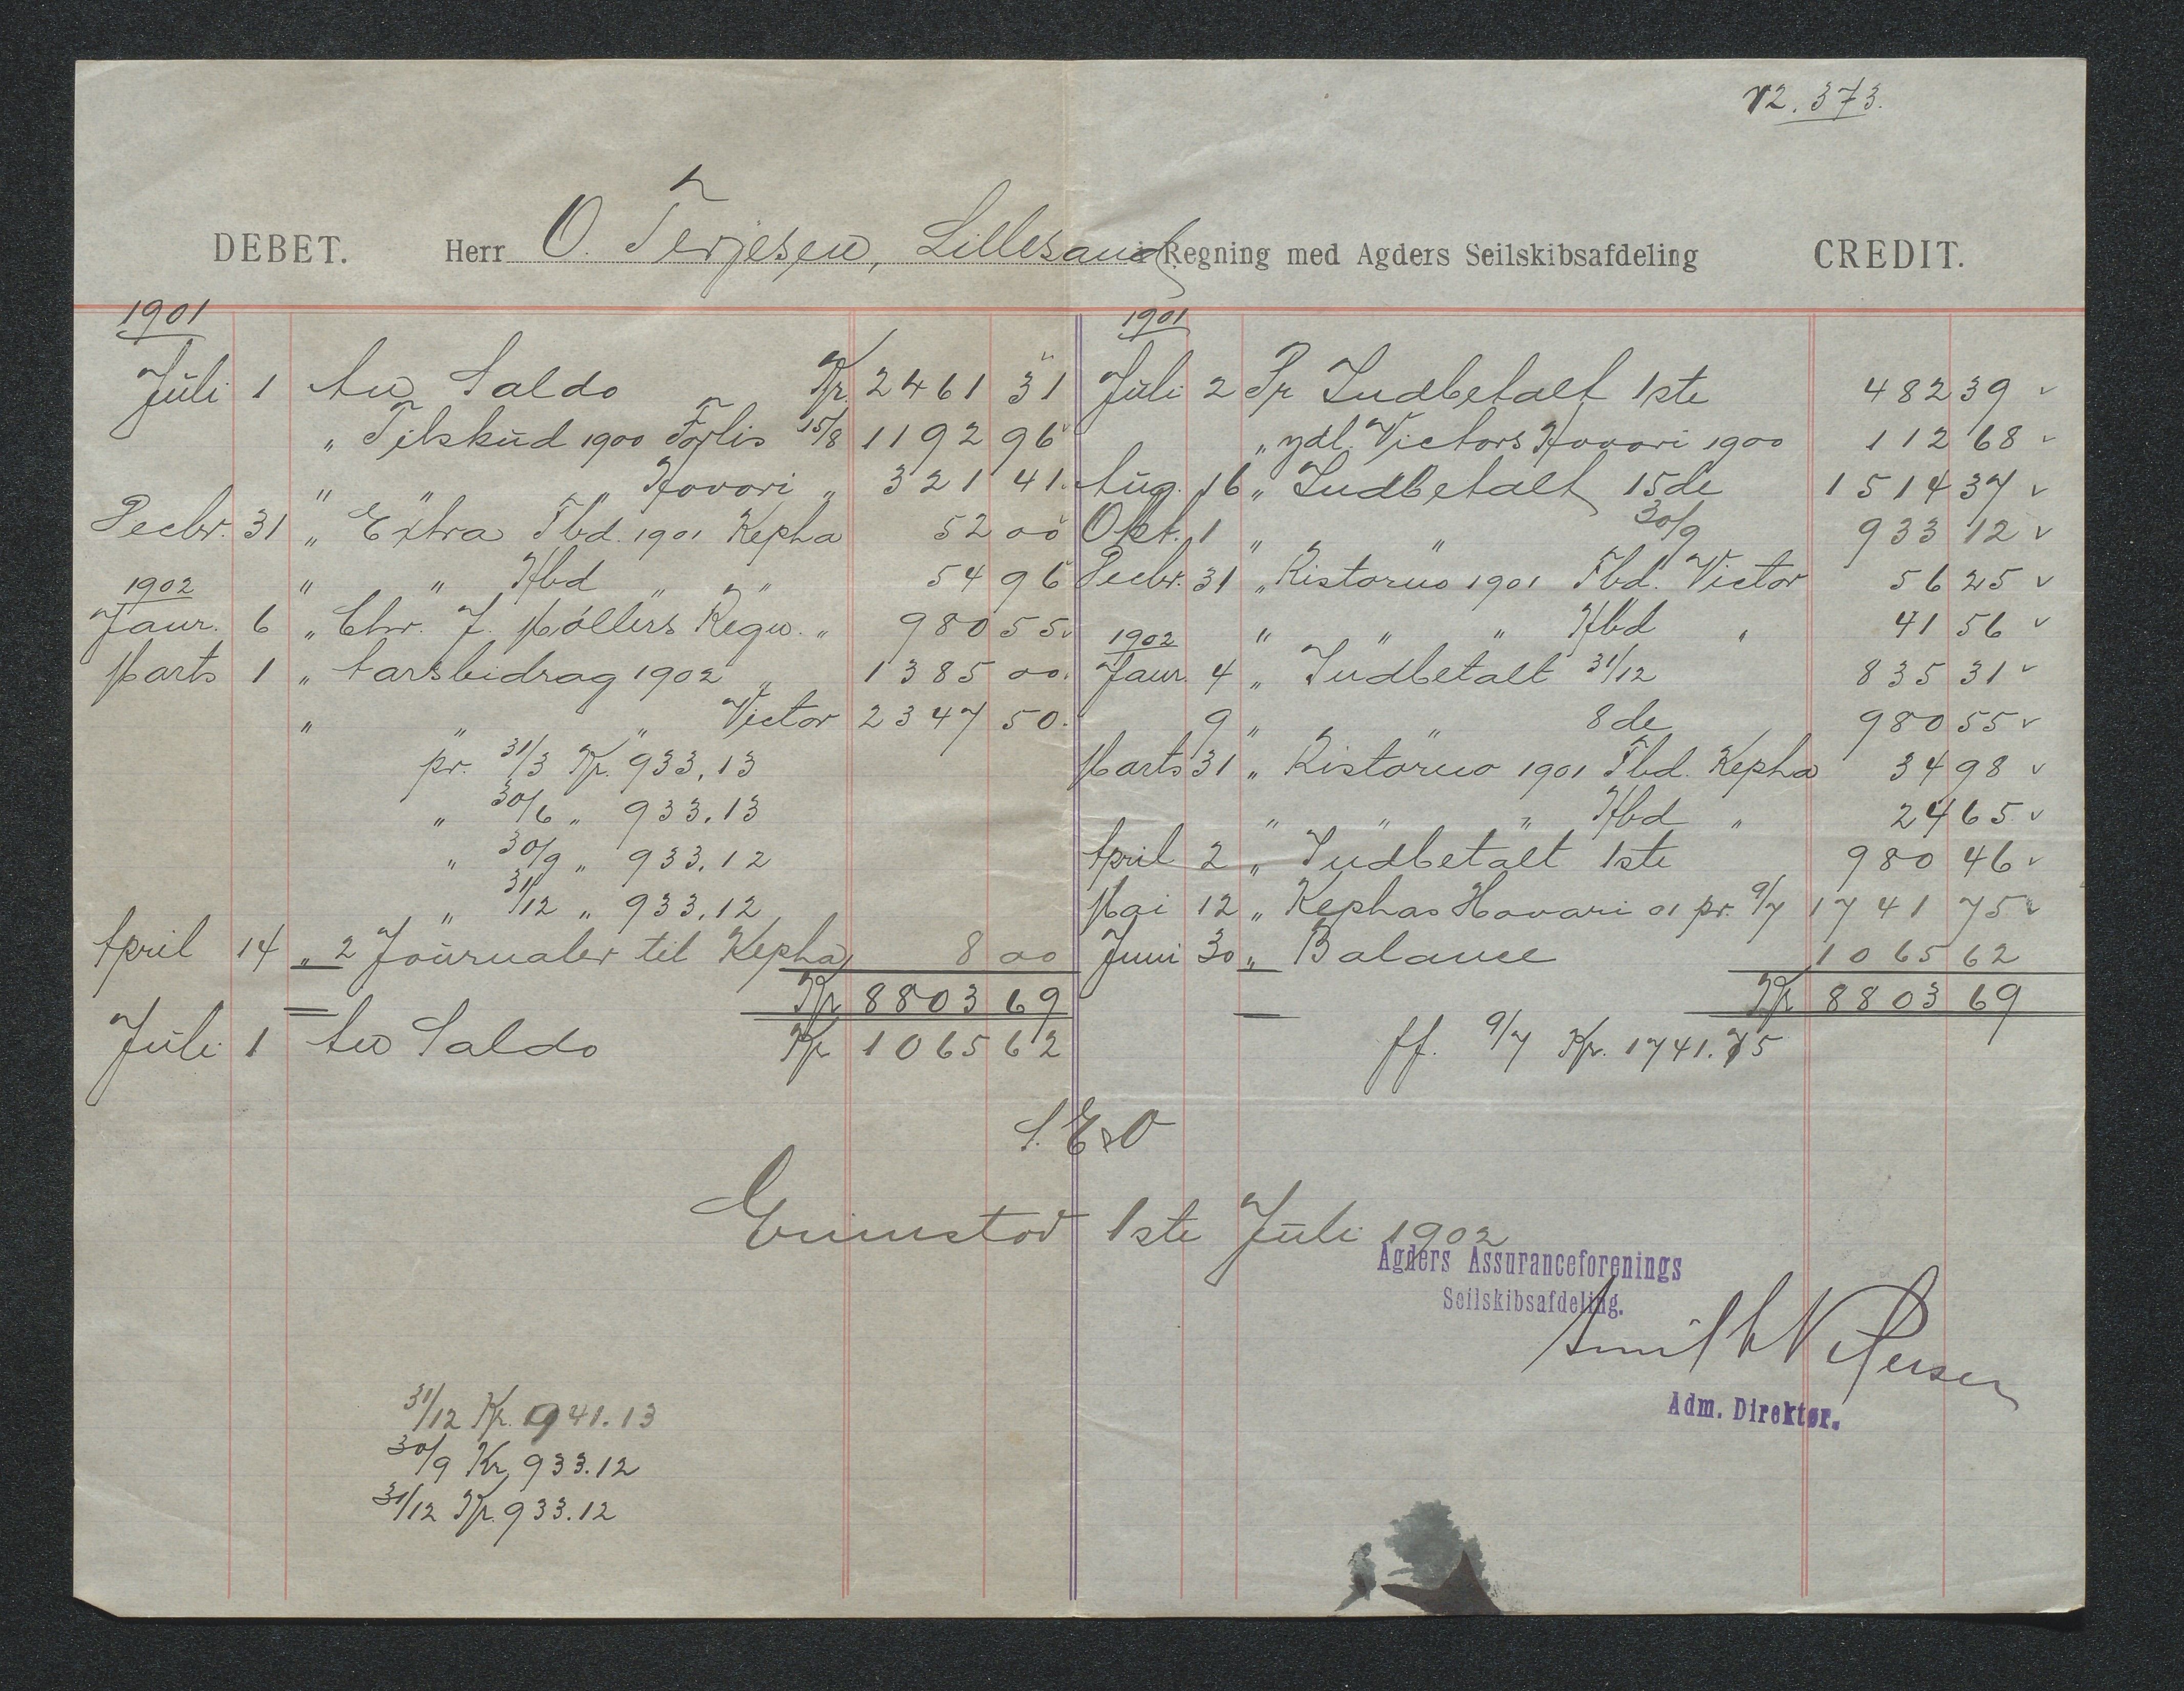 12.373.
DEBET. Herr O. Terjesen, Lillesand i Regning med Agders Seilskibsafdeling CREDIT.
1901
Juli 1 An Saldo Kr. 2461 31
" Tilskud 1900 Forlis 15/8 1192 96
" " " Havari " 321 41.
Decbr. 31 " Extra Fbd. 1901 Kepha 52 00
" " Hbd " " 54 96
1902
Janr. 6 " Chr. J. Møllers Regn. " 980 55
Marts 1 " Aarsbidrag 1902 " 1385 00.
" " " Victor 2347 50.
pr. 31/3 Kr. 933,13
" 30/6 " 933.13
" 30/9 " 933.12
" 31/12 " 933.12
April 14 " 2 Journaler til Kepha 8 00
Kr 8803 69
Juli 1 An Saldo Kr 1065 62
1901
Juli 2 Pr Indbetalt 1ste 482 39
" ydl. Victors Havari 1900 112 68
Aug. 16 " Indbetalt 15de 1514 37
Okt. 1 " " 30/9 933 12
Decbr. 31 " Ristorno 1901 Fbd. Victor 56 25
" " " Hbd " 41 56
1902
Janr. 4 " Indbetalt 31/12 835 31
9 " " 8de 980 55
Marts 31 " Ristorno 1901 Fbd. Kepha 34 98
" " " Hbd " 24 65
April 2 " Indbetalt 1ste 980 46
Mai 12 " Kephas Havari 01 pr. 9/7 1741 75
Juni 30 " Balance 1065 62
Kr 8803 69
ff. 9/7 Kr. 1741.75
S. E & O
Grimstad 1ste Juli 1902
Agders Assuranceforenings
Seilskibsafdeling.
Adm. Direktør.
31/12 Kr. 941.13
30/9 Kr. 933.12
31/12 Kr. 933.12